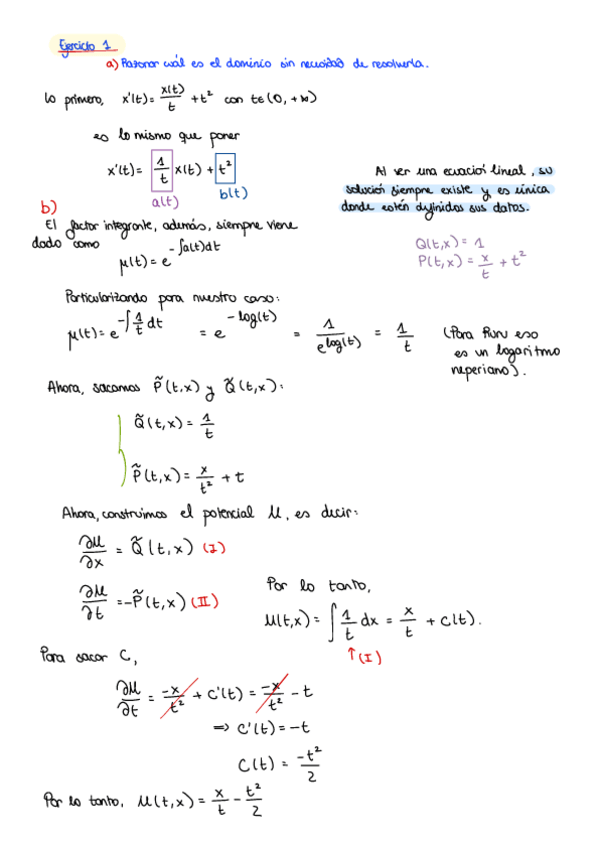 Ejercicio 1
a) Razonar cuál es el dominio sin necesidad de resolverla.
Lo primero, x'(t) = x(t)/t + t² con t∈(0, +∞)
es lo mismo que poner
x'(t) = 1/t x(t) + t²
a(t) b(t)
Al ser una ecuación lineal, su
solución siempre existe y es única
donde estén definidos sus datos.
b)
El factor integrante, además, siempre viene
dado como
μ(t) = e^(-∫a(t)dt)
Q(t,x) = 1
P(t,x) = x/t + t²
Particularizando para nuestro caso:
μ(t) = e^(-∫1/t dt) = e^(-log(t)) = 1/e^(log(t)) = 1/t
(Para Runu eso
es un logaritmo
neperiano).
Ahora, sacamos P̃(t,x) y Q̃(t,x):
Q̃(t,x) = 1/t
P̃(t,x) = x/t² + t
Ahora, construimos el potencial U, es decir:
∂U/∂x = Q̃(t,x) (I)
∂U/∂t = -P̃(t,x) (II)
Por lo tanto,
U(t,x) = ∫ 1/t dx = x/t + C(t).
↑(I)
Para sacar C,
∂U/∂t = -x/t² + C'(t) = -x/t² - t
⇒ C'(t) = -t
C(t) = -t²/2
Por lo tanto, U(t,x) = x/t - t²/2